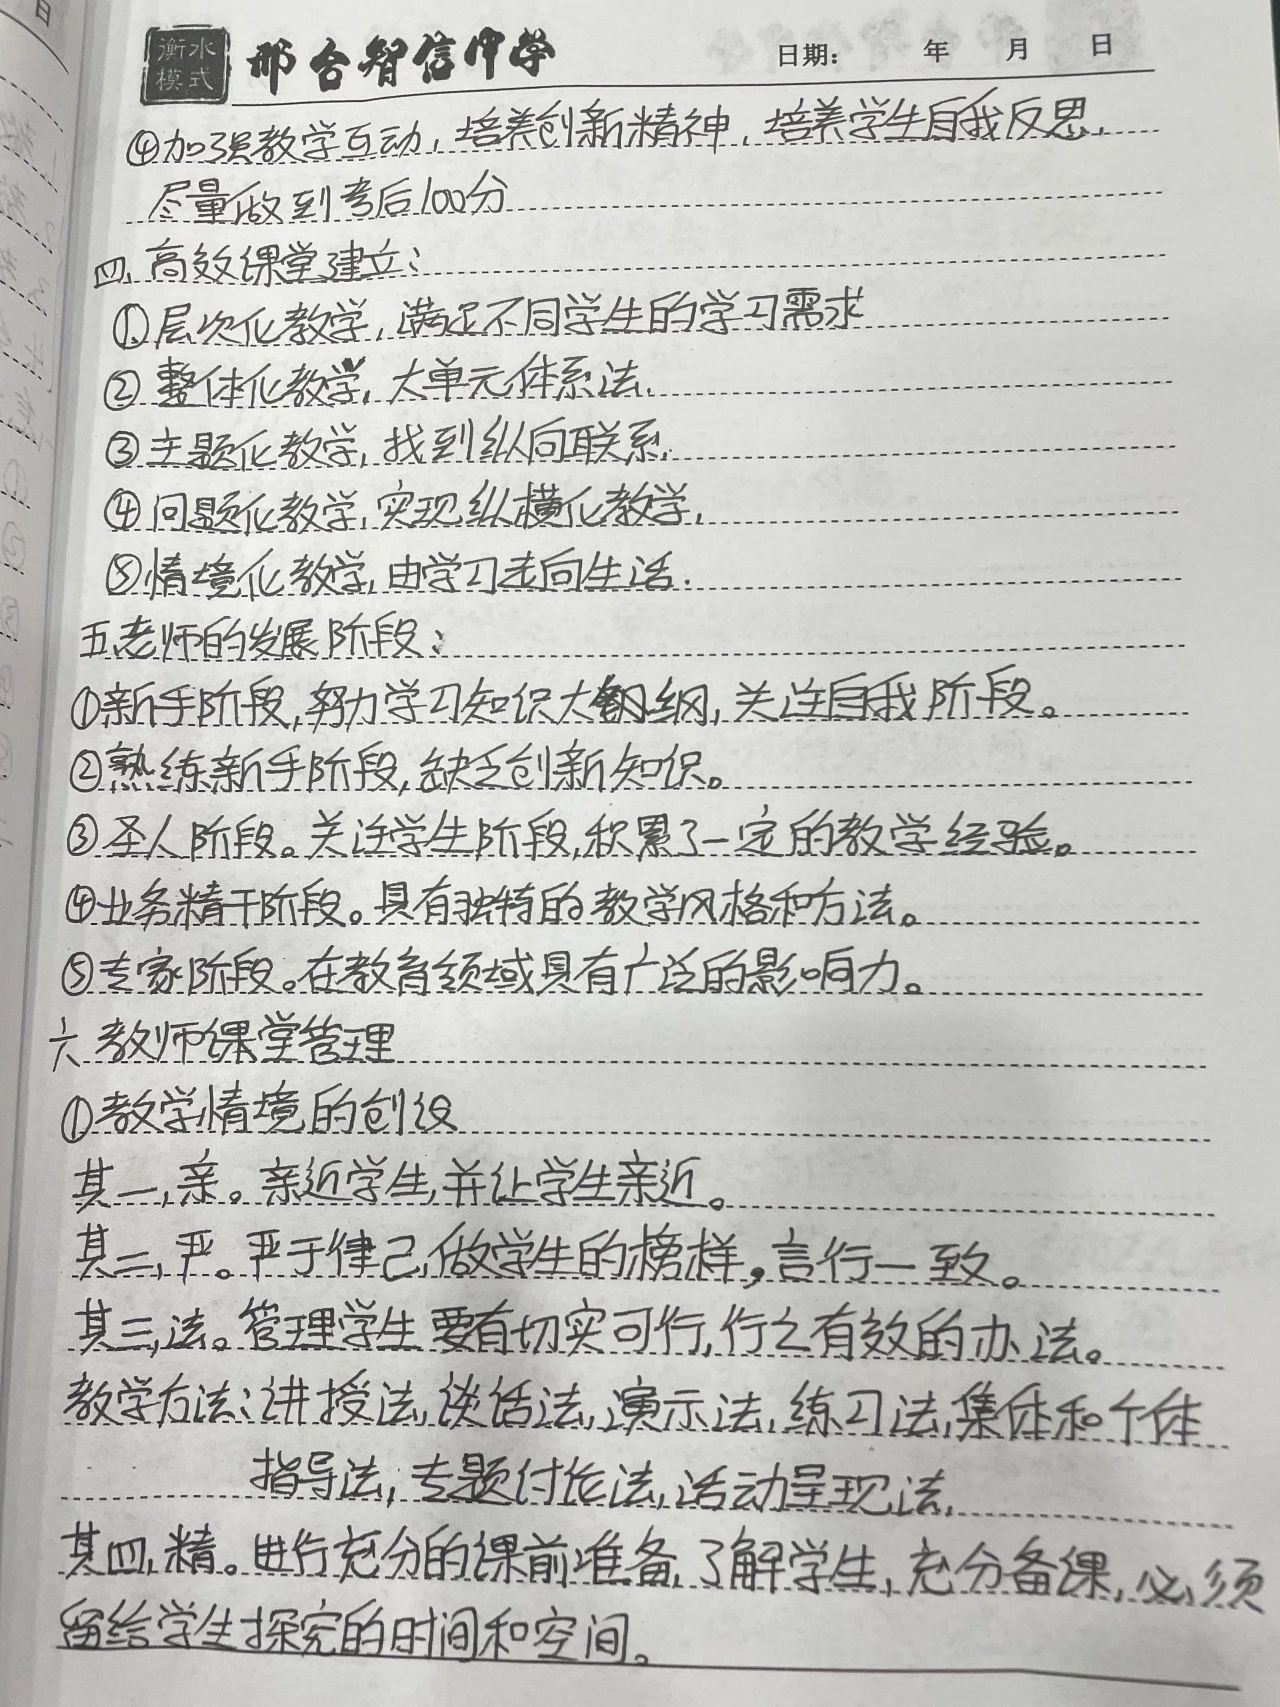 衡水模式 邢台智信中学 日期: 年 月 日
④加强教学互动,培养创新精神,培养学生自我反思,
尽量做到考后100分
四、高效课堂建立:
①层次化教学,满足不同学生的学习需求
②整体化教学,大单元体系法.
③主题化教学,找到纵向联系.
④问题化教学,实现纵横化教学.
⑤情境化教学,由学习走向生活.
五.老师的发展阶段:
①新手阶段,努力学习知识大纲,关注自我阶段。
②熟练新手阶段,缺乏创新知识。
③圣人阶段。关注学生阶段,积累了一定的教学经验。
④业务精干阶段。具有独特的教学风格和方法。
⑤专家阶段。在教育领域具有广泛的影响力。
六.教师课堂管理
①教学情境的创设
其一,亲。亲近学生,并让学生亲近。
其二,严。严于律己,做学生的榜样,言行一致。
其三,法。管理学生要有切实可行,行之有效的办法。
教学方法:讲授法,谈话法,演示法,练习法,集体和个体
指导法,专题讨论法,活动呈现法.
其四,精。进行充分的课前准备,了解学生,充分备课,必须
留给学生探究的时间和空间。